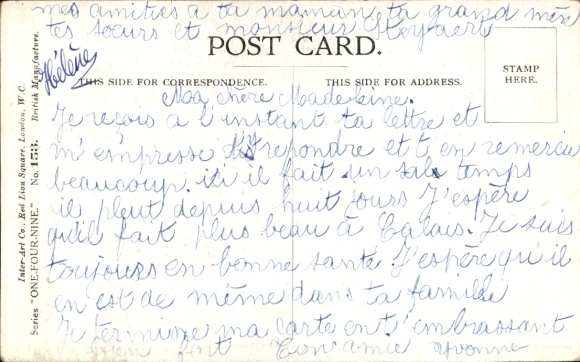 mes amitiés à ta maman, ta grand mère
tes soeurs et monsieur
Hélène
POST CARD.
THIS SIDE FOR CORRESPONDENCE.
THIS SIDE FOR ADDRESS.
STAMP
HERE.
Inter-Art Co., Red Lion Square, London, W.C.
British Manufacture.
Series "ONE-FOUR-NINE." No. 153.
Ma chère Madeleine.
Je reçois à l'instant ta lettre et
m'empresse d'y repondre et t'en remercie
beaucoup. ici il fait un sale temps
il pleut depuis huit jours J'espère
qu'il fait plus beau à Calais. Je suis
toujours en bonne santé J'espère qu'il
en est de même dans ta famille
Je termine ma carte en t'embrassant
bien fort Ton amie Yvonne